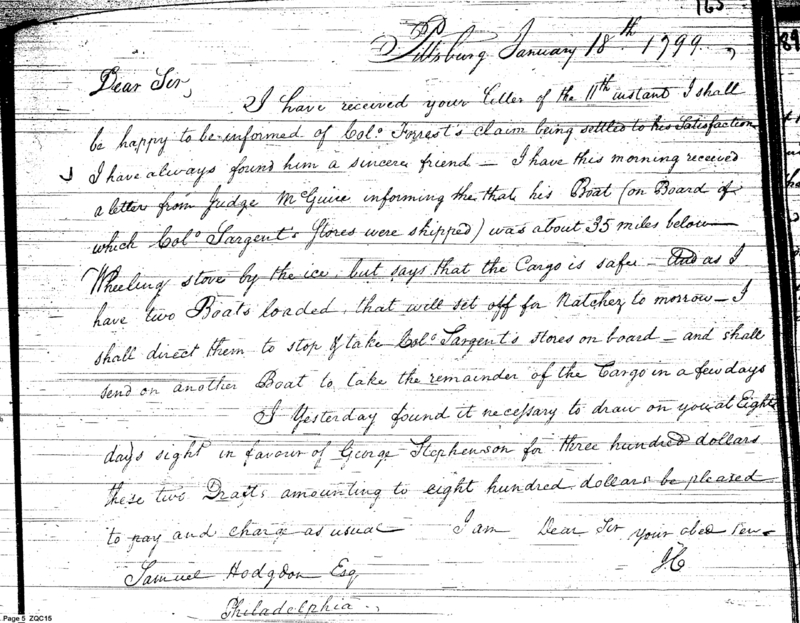 163
Pittsburg January 18th 1799,
Dear Sir,
I have received your letter of the 11th instant I shall
be happy to be informed of Colo. Forrest's claim being settled to his Satisfaction
I have always found him a sincere friend — I have this morning received
a letter from Judge McGuire informing me that his Boat (on Board of
which Colo. Sargent's Stores were shipped) was about 35 miles below —
Wheeling stove by the ice, but says that the Cargo is safe — And as I
have two Boats loaded, that will set off for Natchez to morrow — I
shall direct them to stop & take Colo. Sargent's stores on board — and shall
send on another Boat to take the remainder of the Cargo in a few days
I Yesterday found it necessary to draw on you at Eight
days sight in favour of George Stephenson for three hundred dollars
these two Drafts amounting to eight hundred dollars be pleased
to pay and charge as usual I am Dear Sir your obed Serv.
Samuel Hodgdon Esq
Philadelphia.
Page 5 ZQC15